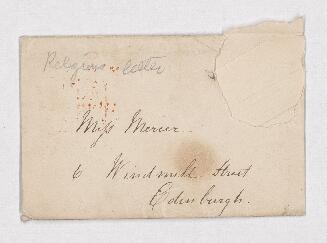 Religious letter
Miss Mercer
6 Windmill Street
Edinburgh.